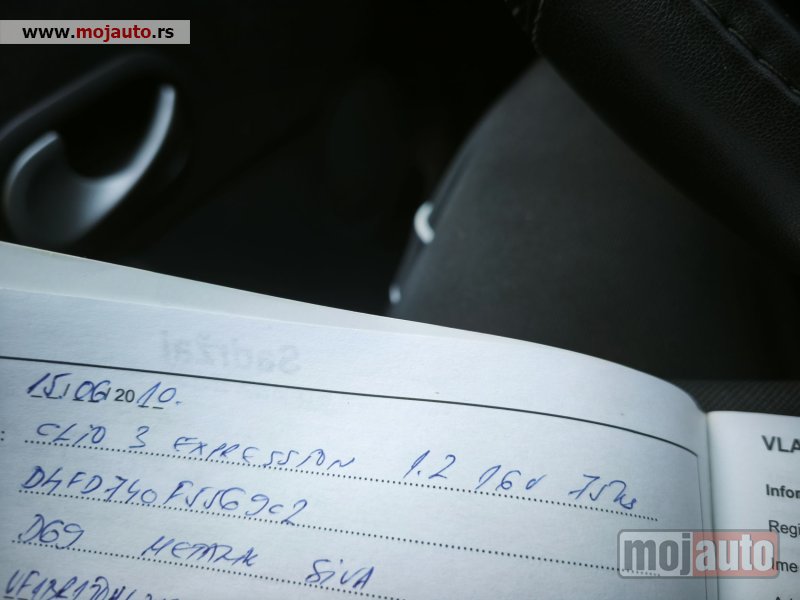 www.mojauto.rs
Sadržaj
15/06/2010.
CLIO 3 EXPRESSION 1.2 16V 75ks
D4FD740F5569c2
D69 METALIK SIVA
VLA
Infor
Regi
Ime
mojauto